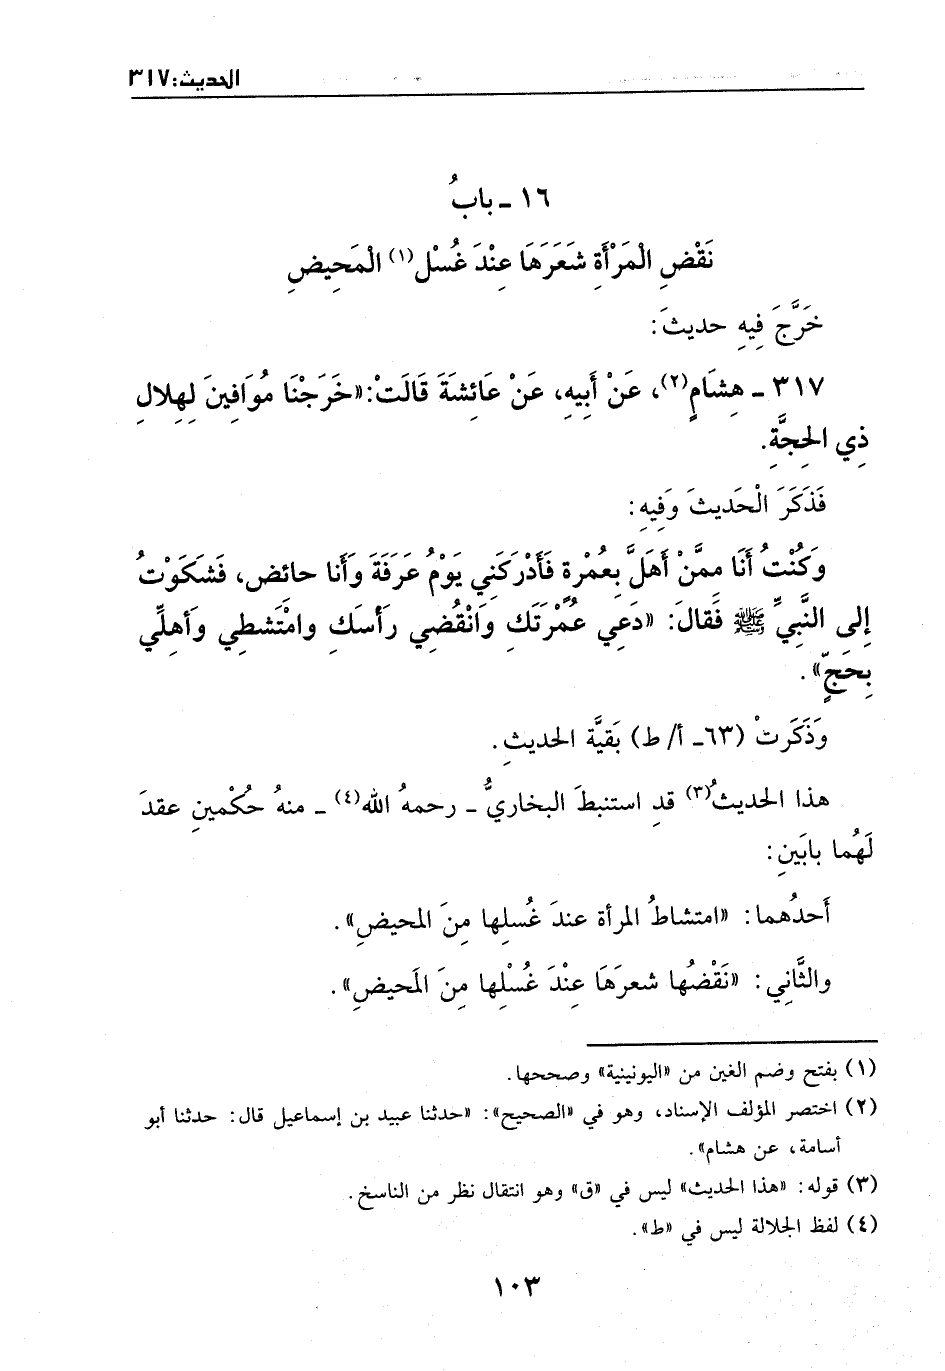 الحديث: ٣١٧
١٦ - بابُ
نَقْضِ الْمَرْأَةِ شَعَرَهَا عِنْدَ غُسْلِ(١) الْمَحِيضِ
خَرَّجَ فِيهِ حديثَ:
٣١٧ - هِشَامٍ(٢)، عَنْ أَبِيهِ، عَنْ عَائِشَةَ قَالَتْ: «خَرَجْنَا مُوَافِينَ لِهِلالِ
ذِي الحِجَّةِ.
فَذَكَرَ الْحَدِيثَ وَفِيهِ:
وَكُنْتُ أَنَا مِمَّنْ أَهَلَّ بِعُمْرةٍ فَأَدْرَكَنِي يَوْمُ عَرَفَةَ وَأَنا حائض، فَشَكَوْتُ
إِلى النَّبِيِّ ﷺ فَقالَ: «دَعِي عُمْرَتَكِ وَانْقُضِي رَأْسَكِ وامْتَشطِي وأَهلِّي
بِحَجٍّ».
وَذَكَرَتْ (٦٣- أ/ ط) بَقيَّة الحديثِ.
هذا الحديثُ(٣) قدِ استنبطَ البخاريُّ - رحمهُ الله(٤) - منهُ حُكْمينِ عقدَ
لَهُما بابَينِ:
أَحدُهما: «امتشاطُ المرأة عندَ غُسلِها مِنَ المحيضِ».
والثَّانِي: «نَقْضُها شعرَهَا عِنْدَ غُسْلِها مِنَ المَحيضِ».
(١) بفتح وضم الغين من «اليونينية» وصححها.
(٢) اختصر المؤلف الإسناد، وهو في «الصحيح»: «حدثنا عبيد بن إسماعيل قال: حدثنا أبو
أسامة، عن هشام».
(٣) قوله: «هذا الحديث» ليس في «ق» وهو انتقال نظر من الناسخ.
(٤) لفظ الجلالة ليس في «ط».
١٠٣